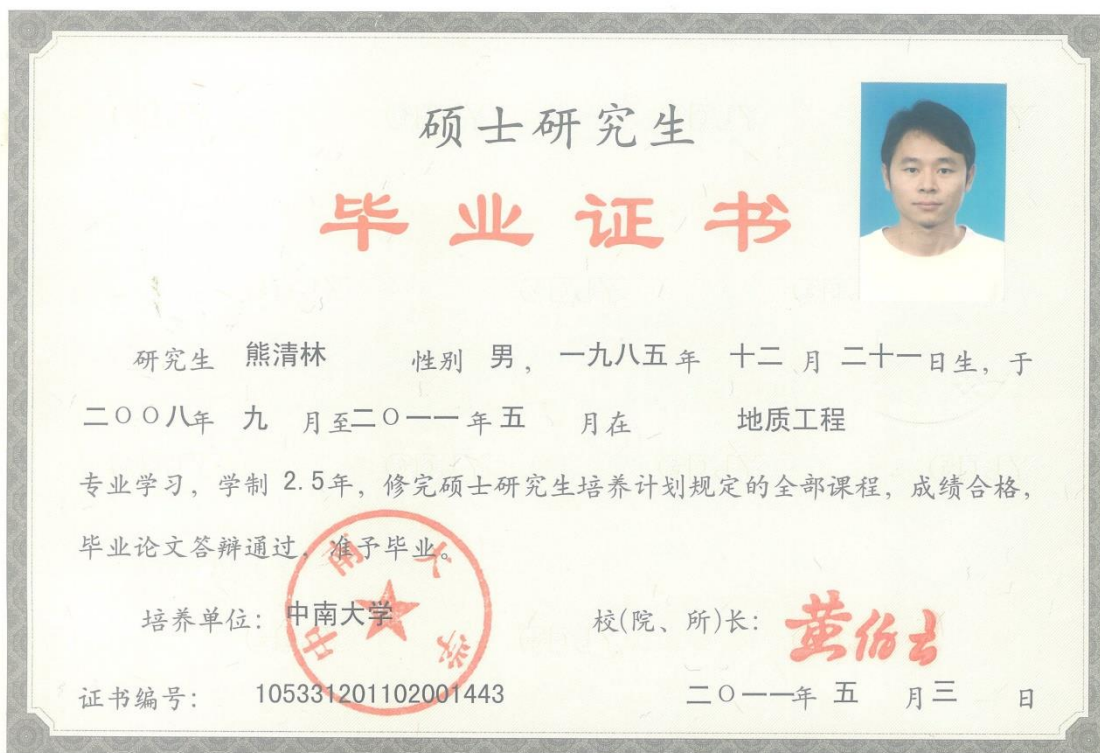 硕士研究生
毕业证书
研究生 熊清林 性别 男，一九八五年 十二月 二十一日生，于
二〇〇八年 九 月至二〇一一年五 月在 地质工程
专业学习，学制 2.5年，修完硕士研究生培养计划规定的全部课程，成绩合格，
毕业论文答辩通过，准予毕业。
中南大学
培养单位：中南大学 校(院、所)长：黄伯云
证书编号： 105331201102001443 二〇一一年 五 月三 日